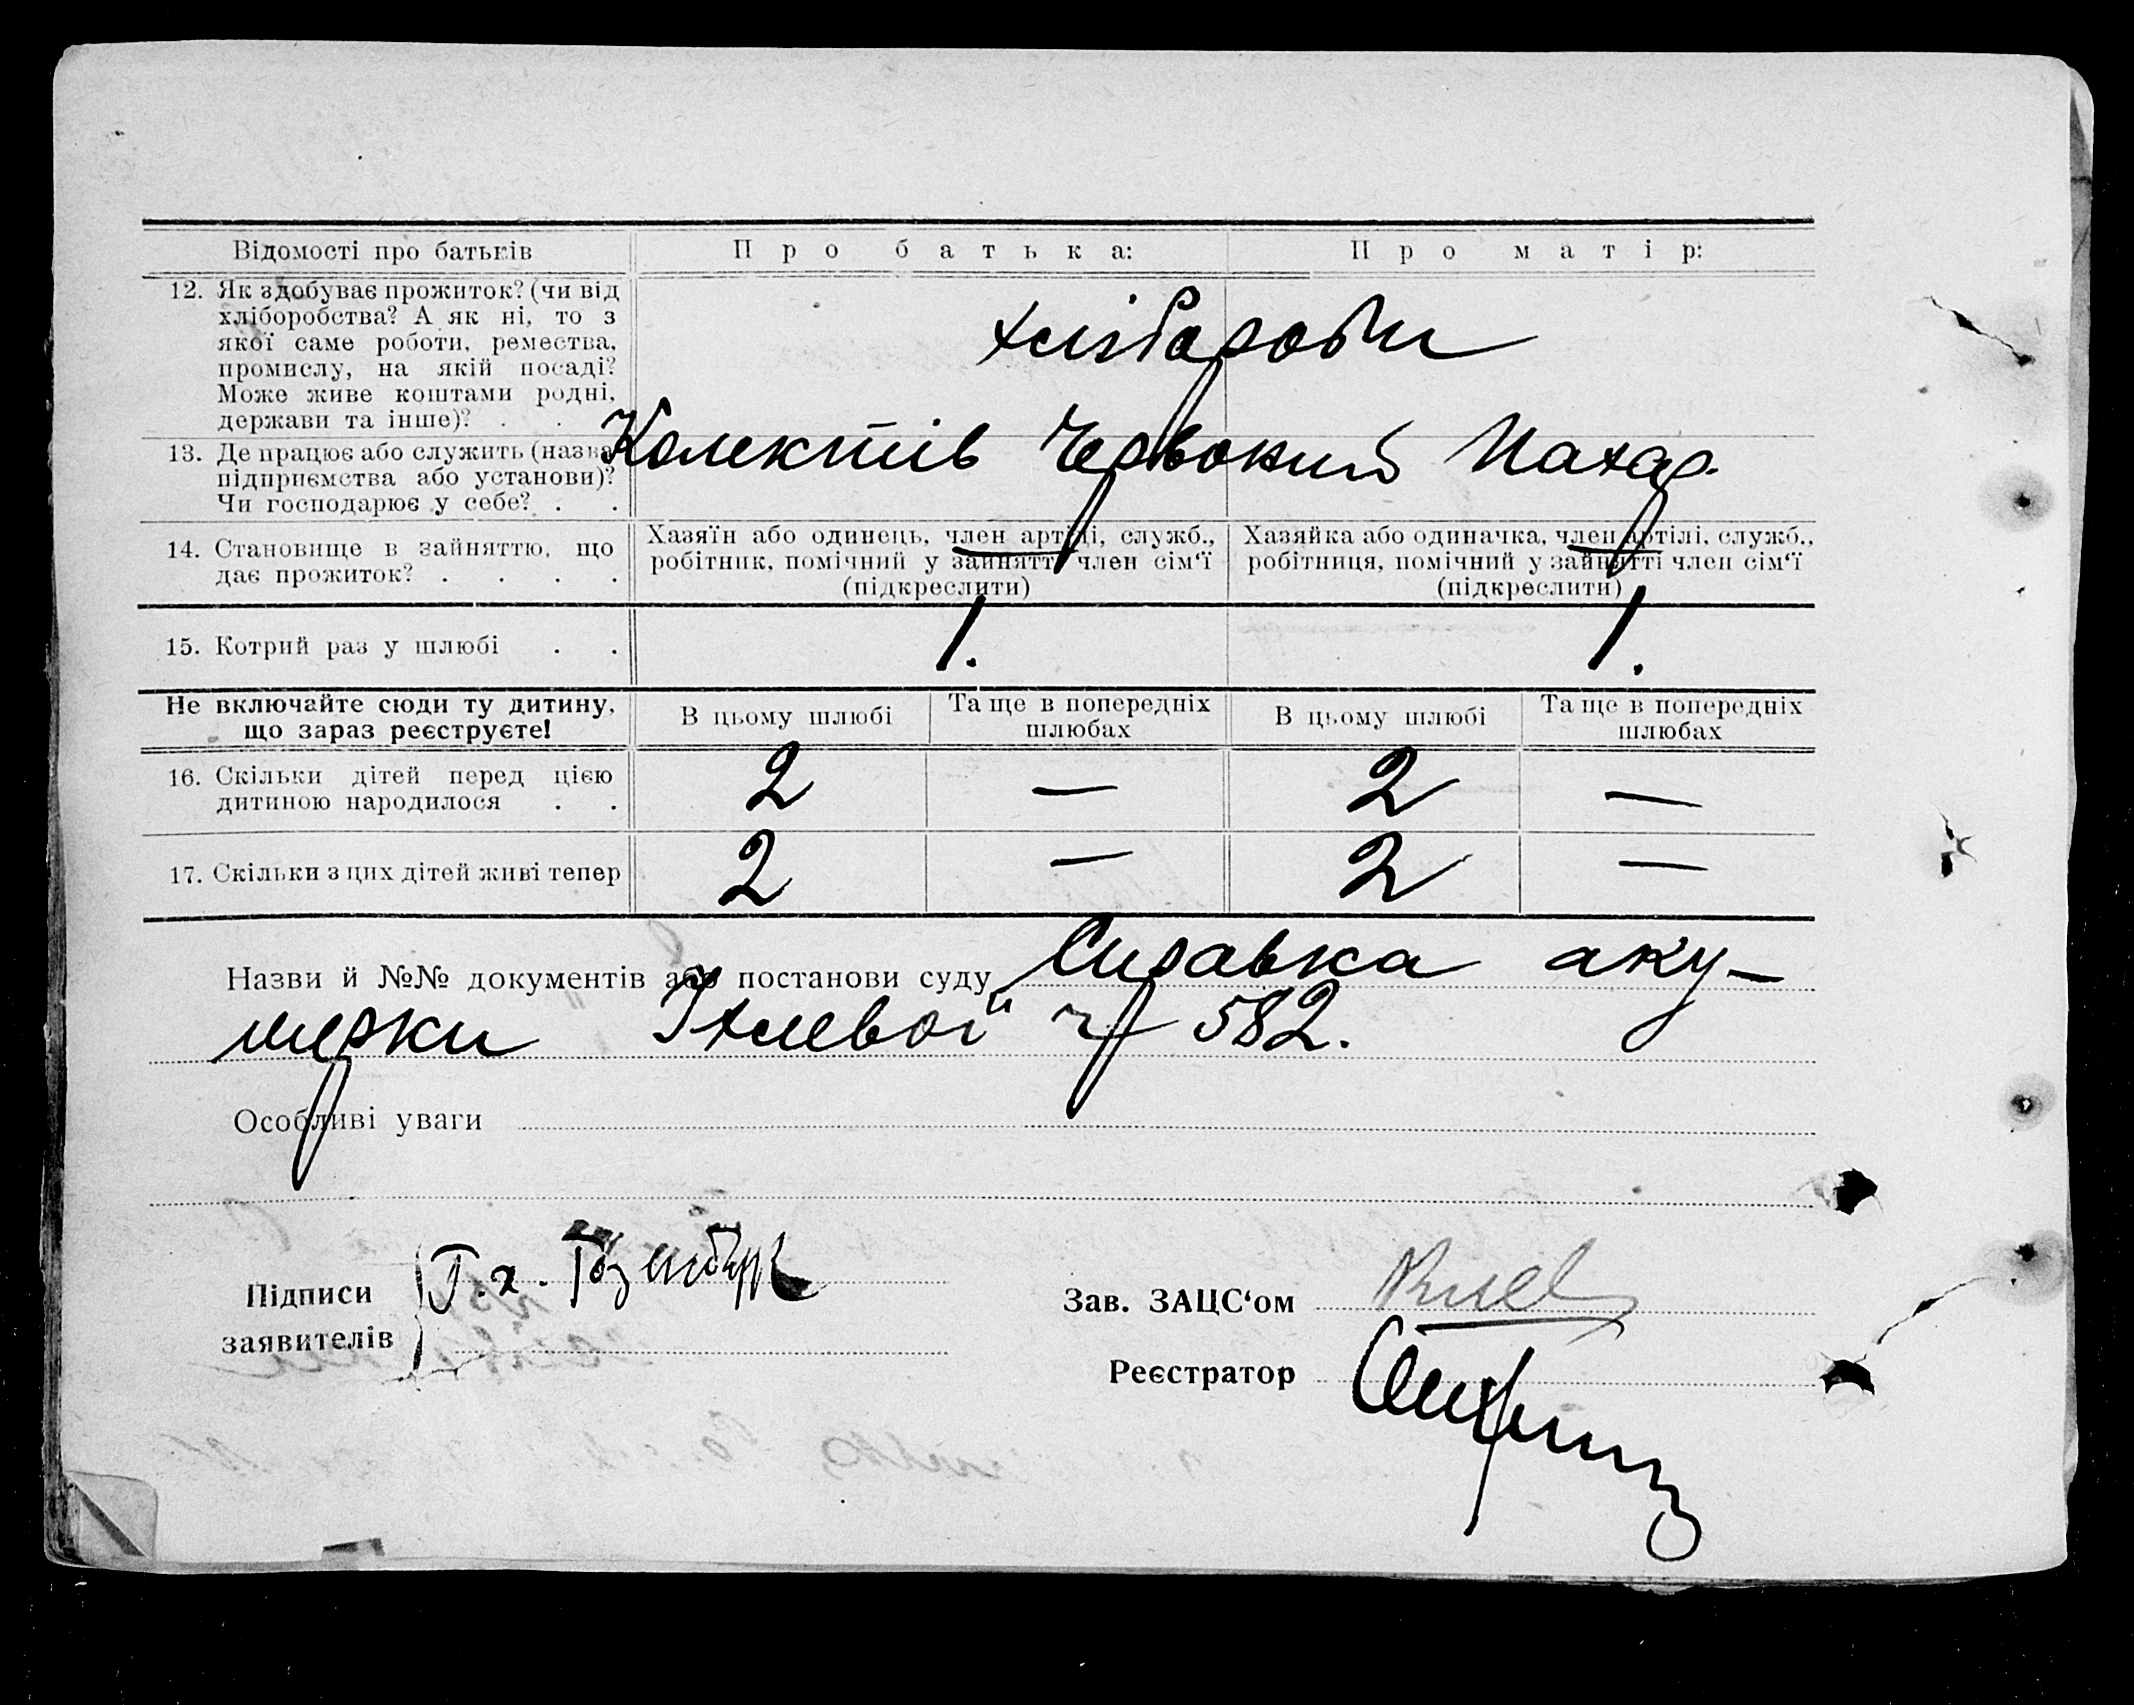 Відомості про батьків Про батька: Про матір:
12. Як здобуває прожиток? (чи від
хліборобства? А як ні, то з
якої саме роботи, ремества,
промислу, на якій посаді?
Може живе коштами родні,
держави та інше)? . .
хлібороби
13. Де працює або служить (назва
підприємства або установи)?
Чи господарює у себе? . .
Колектів Червоний Пахар
14. Становище в зайняттю, що
дає прожиток? . . . .
Хазяїн або одинець, член артілі, служб.,
робітник, помічний у зайнятті член сім‘ї
(підкреслити)
Хазяйка або одиначка, член артілі, служб.,
робітниця, помічний у зайнятті член сім‘ї
(підкреслити)
15. Котрий раз у шлюбі . . 1. 1.
Не включайте сюди ту дитину,
що зараз реєструєте!
В цьому шлюбі
Та ще в попередніх
шлюбах
В цьому шлюбі
Та ще в попередніх
шлюбах
16. Скільки дітей перед цією
дитиною народилося . .
2 — 2 —
17. Скільки з цих дітей живі тепер 2 — 2 —
Назви й №№ документів або постанови суду Справка аку-
шерки 582.
Особливі уваги
Підписи
заявителів
Г. х.
Зав. ЗАЦС‘ом
Реєстратор